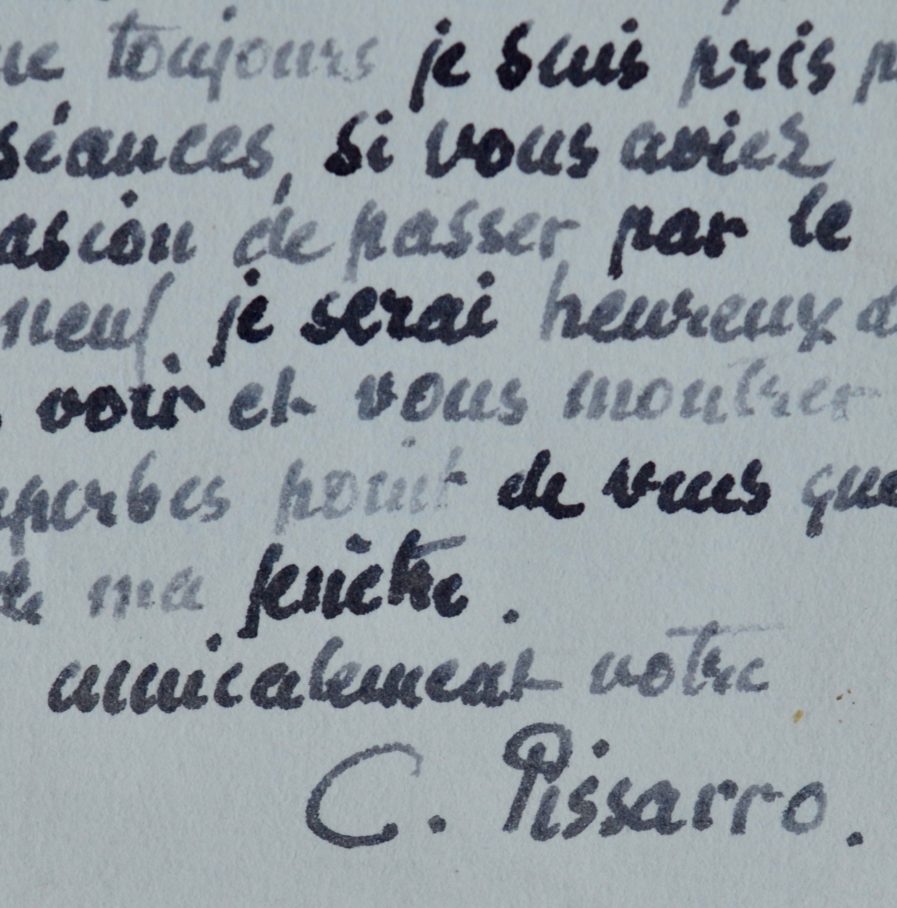 ue toujours je suis pris p
séances, si vous aviez
asion de passer par le
neuf, je serai heureux d
voir et vous montrer
uperbes point de vues que
de ma fenêtre.
amicalement votre
C. Pissarro.